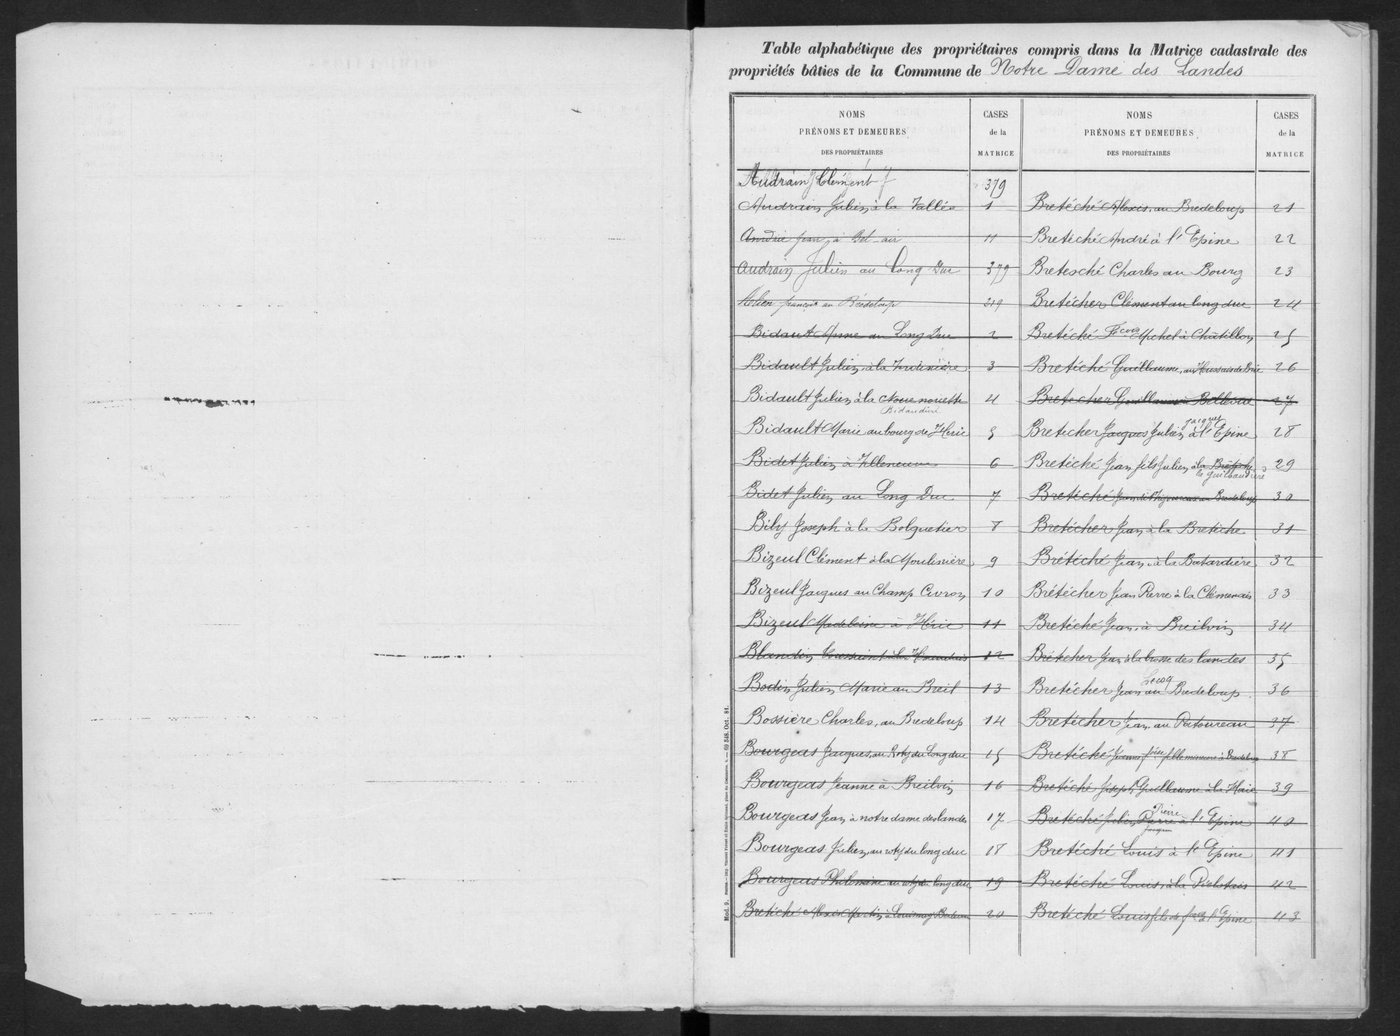 Table alphabétique des propriétaires compris dans la Matrice cadastrale des
propriétés bâties de la Commune de Notre Dame des Landes
NOMS
PRÉNOMS ET DEMEURES
DES PROPRIÉTAIRES
CASES
de la
MATRICE
Audrain Clément 379
Audrain Julien à la Vallée 1
jean à Bel air 11
Audrain Julien au Long Duc 379
françois au Bredeloup 219
Bidault au Long Duc 2
Bidault Julien à la 3
Bidault Julien à la Noue nouette 4
Bidaudiré
Bidault Marie au bourg de Héric 5
Bidet Julien à Villeneuve 6
Bidet Julien au Long Duc 7
Bily Joseph à la Bolquetier 8
Bizeul Clément à la Moulinière 9
Bizeul Jacques au Champ Civron 10
Bizeul Madeleine à Héric 11
Blandin 12
Bodin Julien Marie au Breil 13
Bossière Charles, au Bredeloup 14
Bourgeas Jacques, au du Long duc 15
Bourgeas Jeanne à Breilvin 16
Bourgeas Jean à notre dame des landes 17
Bourgeas Julien, au du long duc 18
Bourgeas Philomène au du long duc 19
Bretéché Alexis 20
NOMS
PRÉNOMS ET DEMEURES
DES PROPRIÉTAIRES
CASES
de la
MATRICE
Bretéché Alexis, au Bredeloup 21
Bretéché André à l'Epine 22
Bretesché Charles au Bourg 23
Bretécher Clément au long duc 24
Bretéché Michel à Châtillon 25
Bretéché Guillaume, au 26
Bretécher Guillaume à Bellevue 27
Jacques
Bretecher Jacques Julien à l'Epine 28
Bretéché Jean fils Julien à la 29
la Guilbaudière
Bretéché Bredeloup 30
Bretécher Jean à la Bretèche 31
Brétéché Jean à la Batardière 32
Brétécher Jean Pierre à la Clémenais 33
Bretéché Jean à Breilvin 34
Brétecher Jean à la bosse des landes 35
Bretécher Jean au Bredeloup 36
Bretécher Jean au Patoureau 37
Bretéché 38
Bretéché Joseph Guillaume La Haie 39
Pierre
Bretéché Julien Pierre à l'Epine 40
Bretéché Louis à l'Epine 41
Bretéché Louis à la 42
Bretéché Louis fils de à l'Epine 43